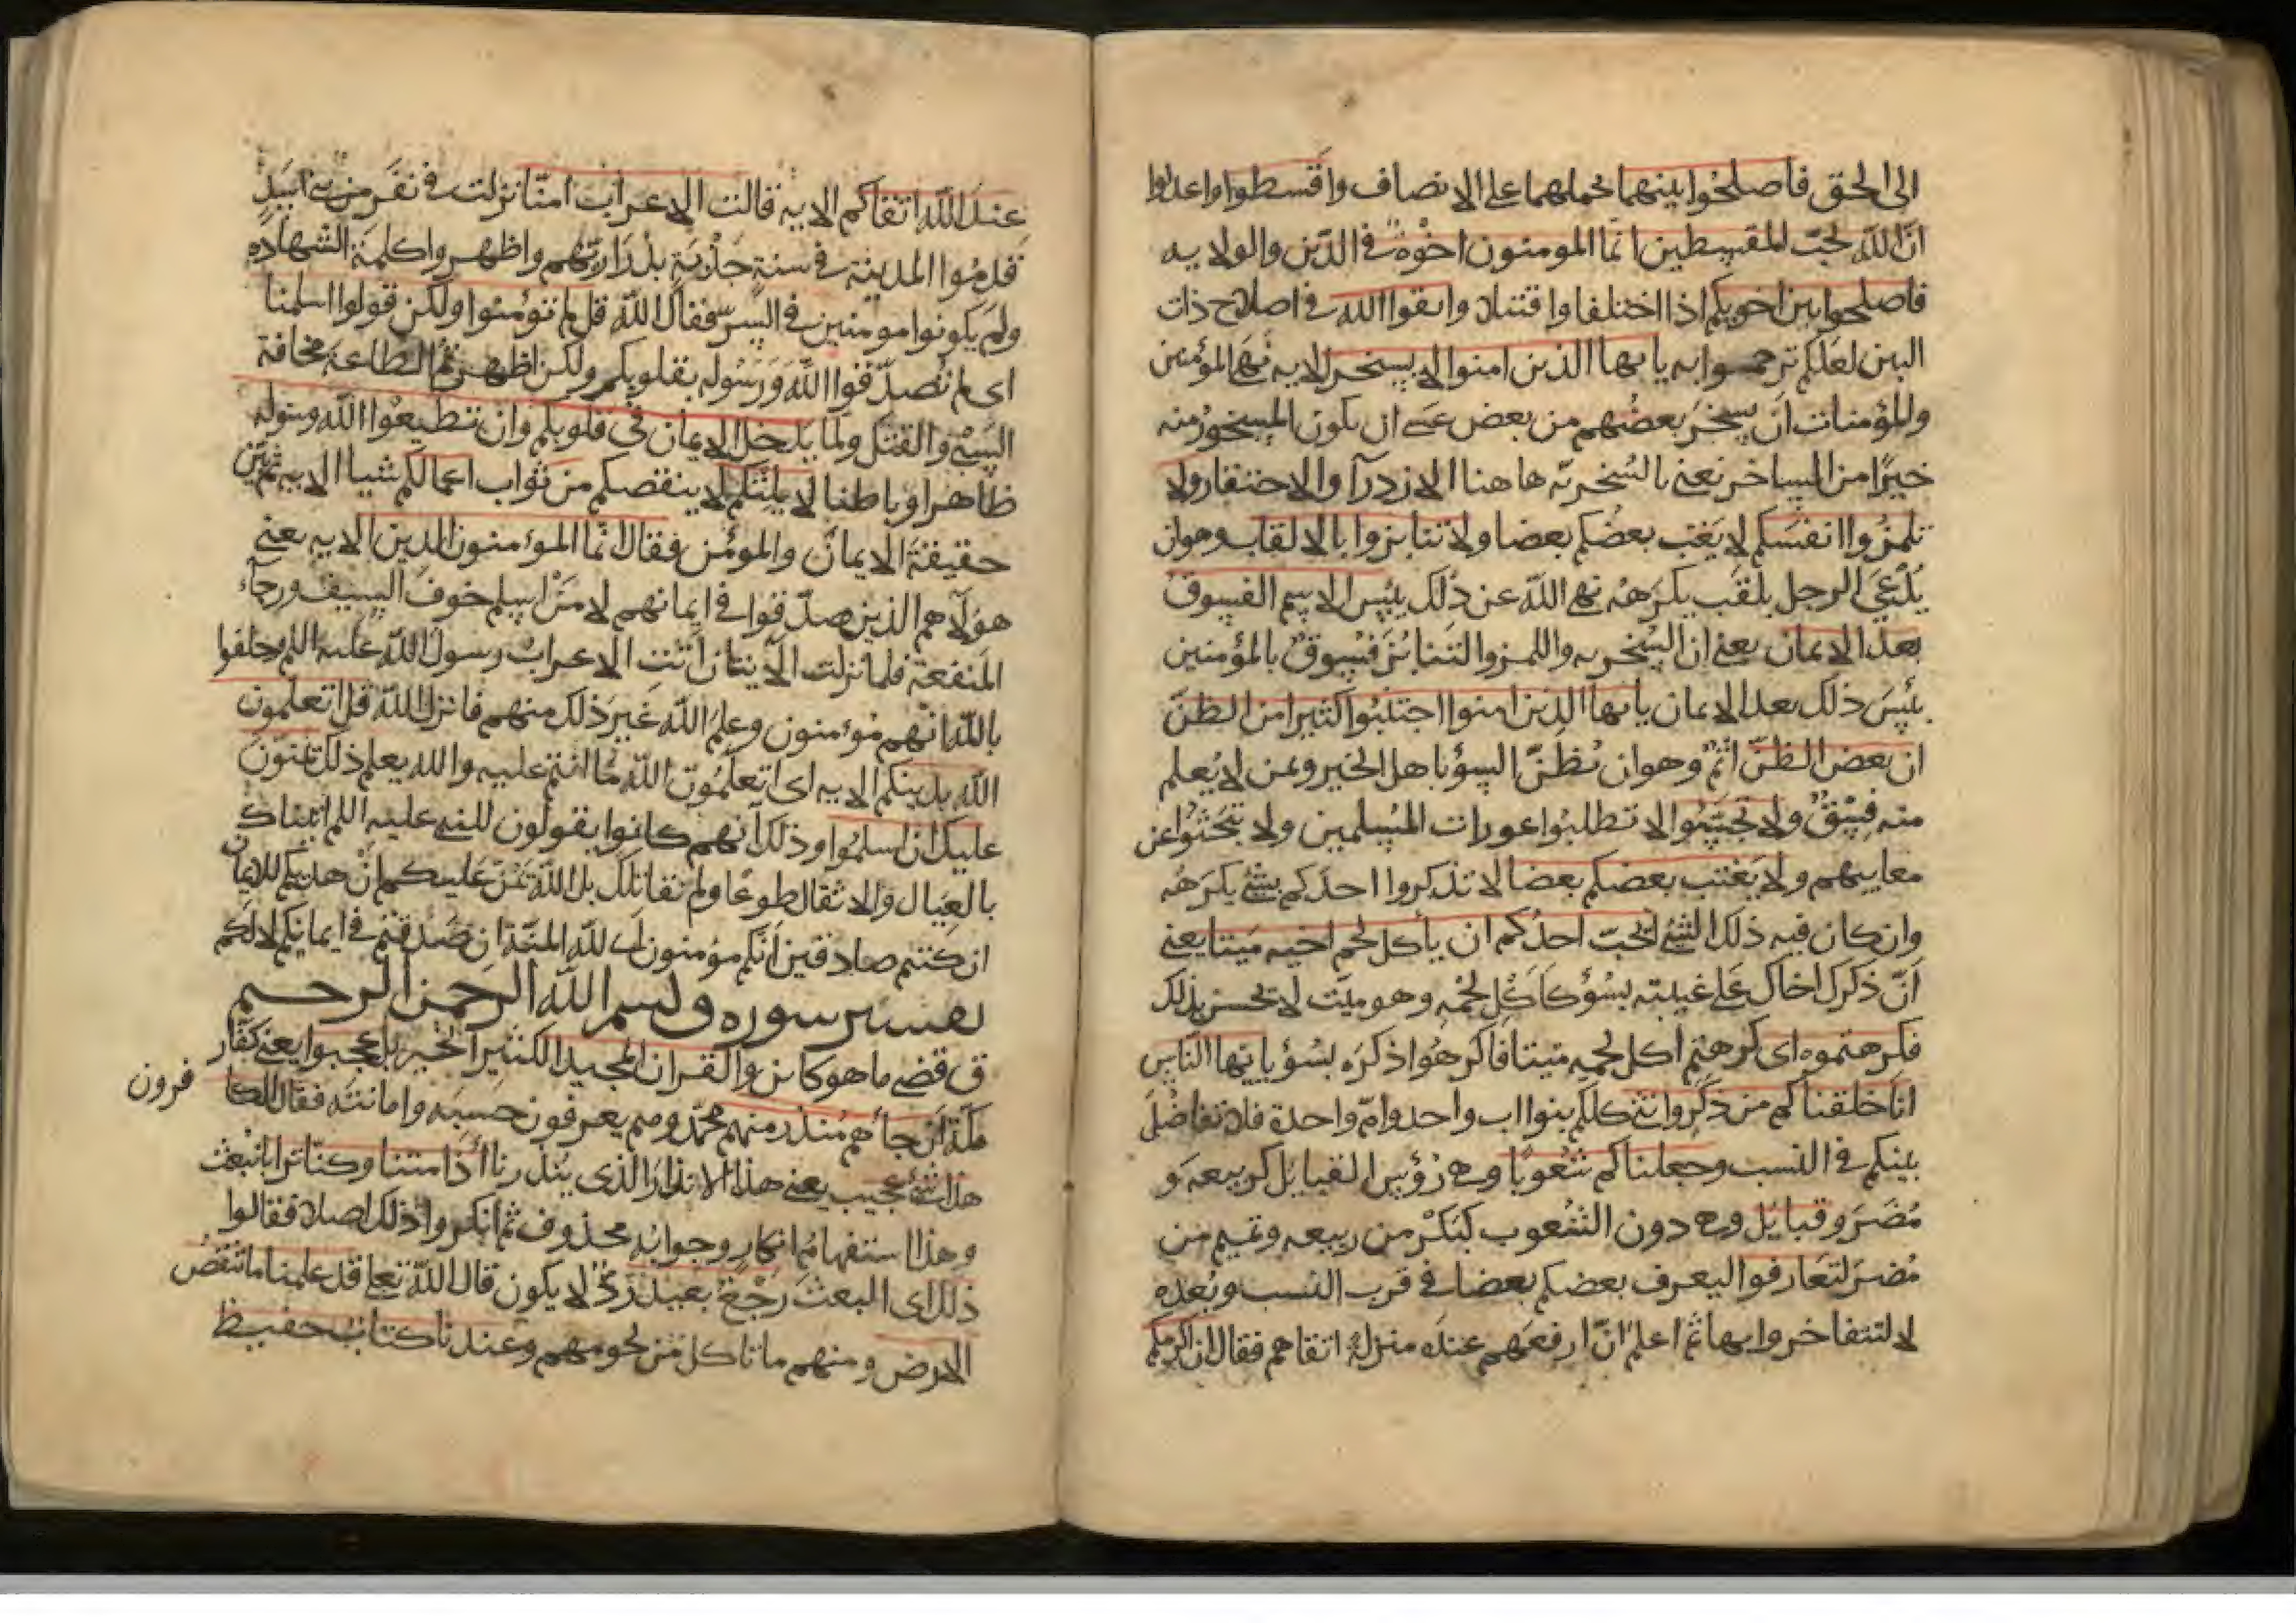 الى الحق فاصلحوا بينهما بحملهما على الانصاف واقسطوا واعدلوا
ان الله يحب المقسطين انما المومنون اخوة في الدين والولايه
فاصلحوا بين اخويكم اذا اختلفا واقتتلا واتقوا الله في اصلاح ذات
البين لعلكم ترحموا به يا ايها الذين امنوا لا يسخر الايه نهى المؤمنين
والمؤمنات ان يسخر بعضهم من بعض عسى ان يكون المسخور منه
خيرا من الساخر نعني بالسخريه هاهنا الازدرآ والاحتقار ولا
تلمزوا انفسكم لا يغتب بعضكم بعضا ولا تنابزوا بالالقاب وهو ان
يدعى الرجل بلقب يكرهه نهى الله عن ذلك بئس الاسم الفسوق
بعد الايمان يعني ان السخريه واللمز والتنابز فسوق بالمؤمنين
بئس ذلك بعد الايمان يا ايها الذين امنوا اجتنبوا كثيرا من الظن
ان بعض الظن اثم وهو ان تظن السؤ باهل الخير وبمن لا يعلم
منه فسق ولا تجسسوا لا تطلبوا عورات المسلمين ولا تبحثوا عن
معايبهم ولا يغتب بعضكم بعضا لا تذكروا احدكم بشئ يكرهه
وان كان فيه ذلك الشئ ايحب احدكم ان يأكل لحم اخيه ميتا يعني
ان ذكرك اخاك على غيبته بسؤ كاكل لحمه وهو ميت لا يحس بذلك
فكرهتموه اى كرهتم اكل لحمه ميتا فاكرهوا ذكره بسؤ يا ايها الناس
انا خلقناكم من ذكر وانثى كلكم بنوا اب واحد وام واحدة فلا تفاضل
بينكم في النسب وجعلناكم شعوبا وهى رؤس القبايل كربيعه و
مضر وقبايل وهى دون الشعوب كبكر من ربيعه وتميم من
مضر لتعارفوا ليعرف بعضكم بعضا في قرب النسب وبعده
لا لتتفاخروا بها ثم اعلم ان ارفعهم عنده منزلة اتقاهم فقال ان اكرمكم
عند الله اتقاكم الايه قالت الاعراب امنا نزلت في نفر من بنى اسد
قدموا المدينة في سنة جدبة بذراريهم واظهروا كلمة الشهاده
ولم يكونوا مومنين في السر فقال الله قل لم تؤمنوا ولكن قولوا اسلمنا
اى لم تصدقوا الله ورسوله بقلوبكم ولكن اظهرتم الطاعة مخافة
السبى والقتل ولما يدخل الايمان في قلوبكم وان تطيعوا الله ورسوله
ظاهرا وباطنا لا يلتكم لا ينقصكم من ثواب اعمالكم شيا الايه ثم بين
حقيقة الايمان والمومن فقال انما المؤمنون الذين الايه يعني
هؤلآ هم الذين صدقوا في ايمانهم لا من اسلم خوف السيف ورجاء
المنفعة فلما نزلت الآيتان اتت الاعراب رسول الله عليه السلم وحلفوا
بالله انهم مؤمنون وعلم الله غير ذلك منهم فانزل الله قل اتعلمون
الله بدينكم الايه اى اتعلمون الله ما انتم عليه والله يعلم ذلك يمنون
عليك ان اسلموا وذلك انهم كانوا يقولون للنبي عليه السلم اتيناك
بالعيال والاثقال طوعا ولم نقاتلك بل الله يمن عليكم ان هديكم للايمان
ان كنتم صادقين انكم مؤمنون اى لله المنة ان صدقتم في ايمانكم لا لكم
تفسير سوره ق بسم الله الرحمن الرحيم
ق قضى ما هو كائن والقران المجيد الكثير الخير بل عجبوا يعني كفار
مكة ان جاءهم منذر منهم محمد وهم يعرفون حسبه وامانته فقال الكافرون
هذا شئ عجيب يعني هذا الانذار الذى ينذرنا أذا متنا وكنا ترابا نبعث
وهذا استفهام انكار وجوابه محذوف ثم انكروا ذلك اصلا فقالوا
ذلك اى البعث رجع بعيد رد لا يكون قال الله تعلى قد علمنا ما تنقص
الارض منهم ما تاكل من لحومهم وعندنا كتاب حفيظ